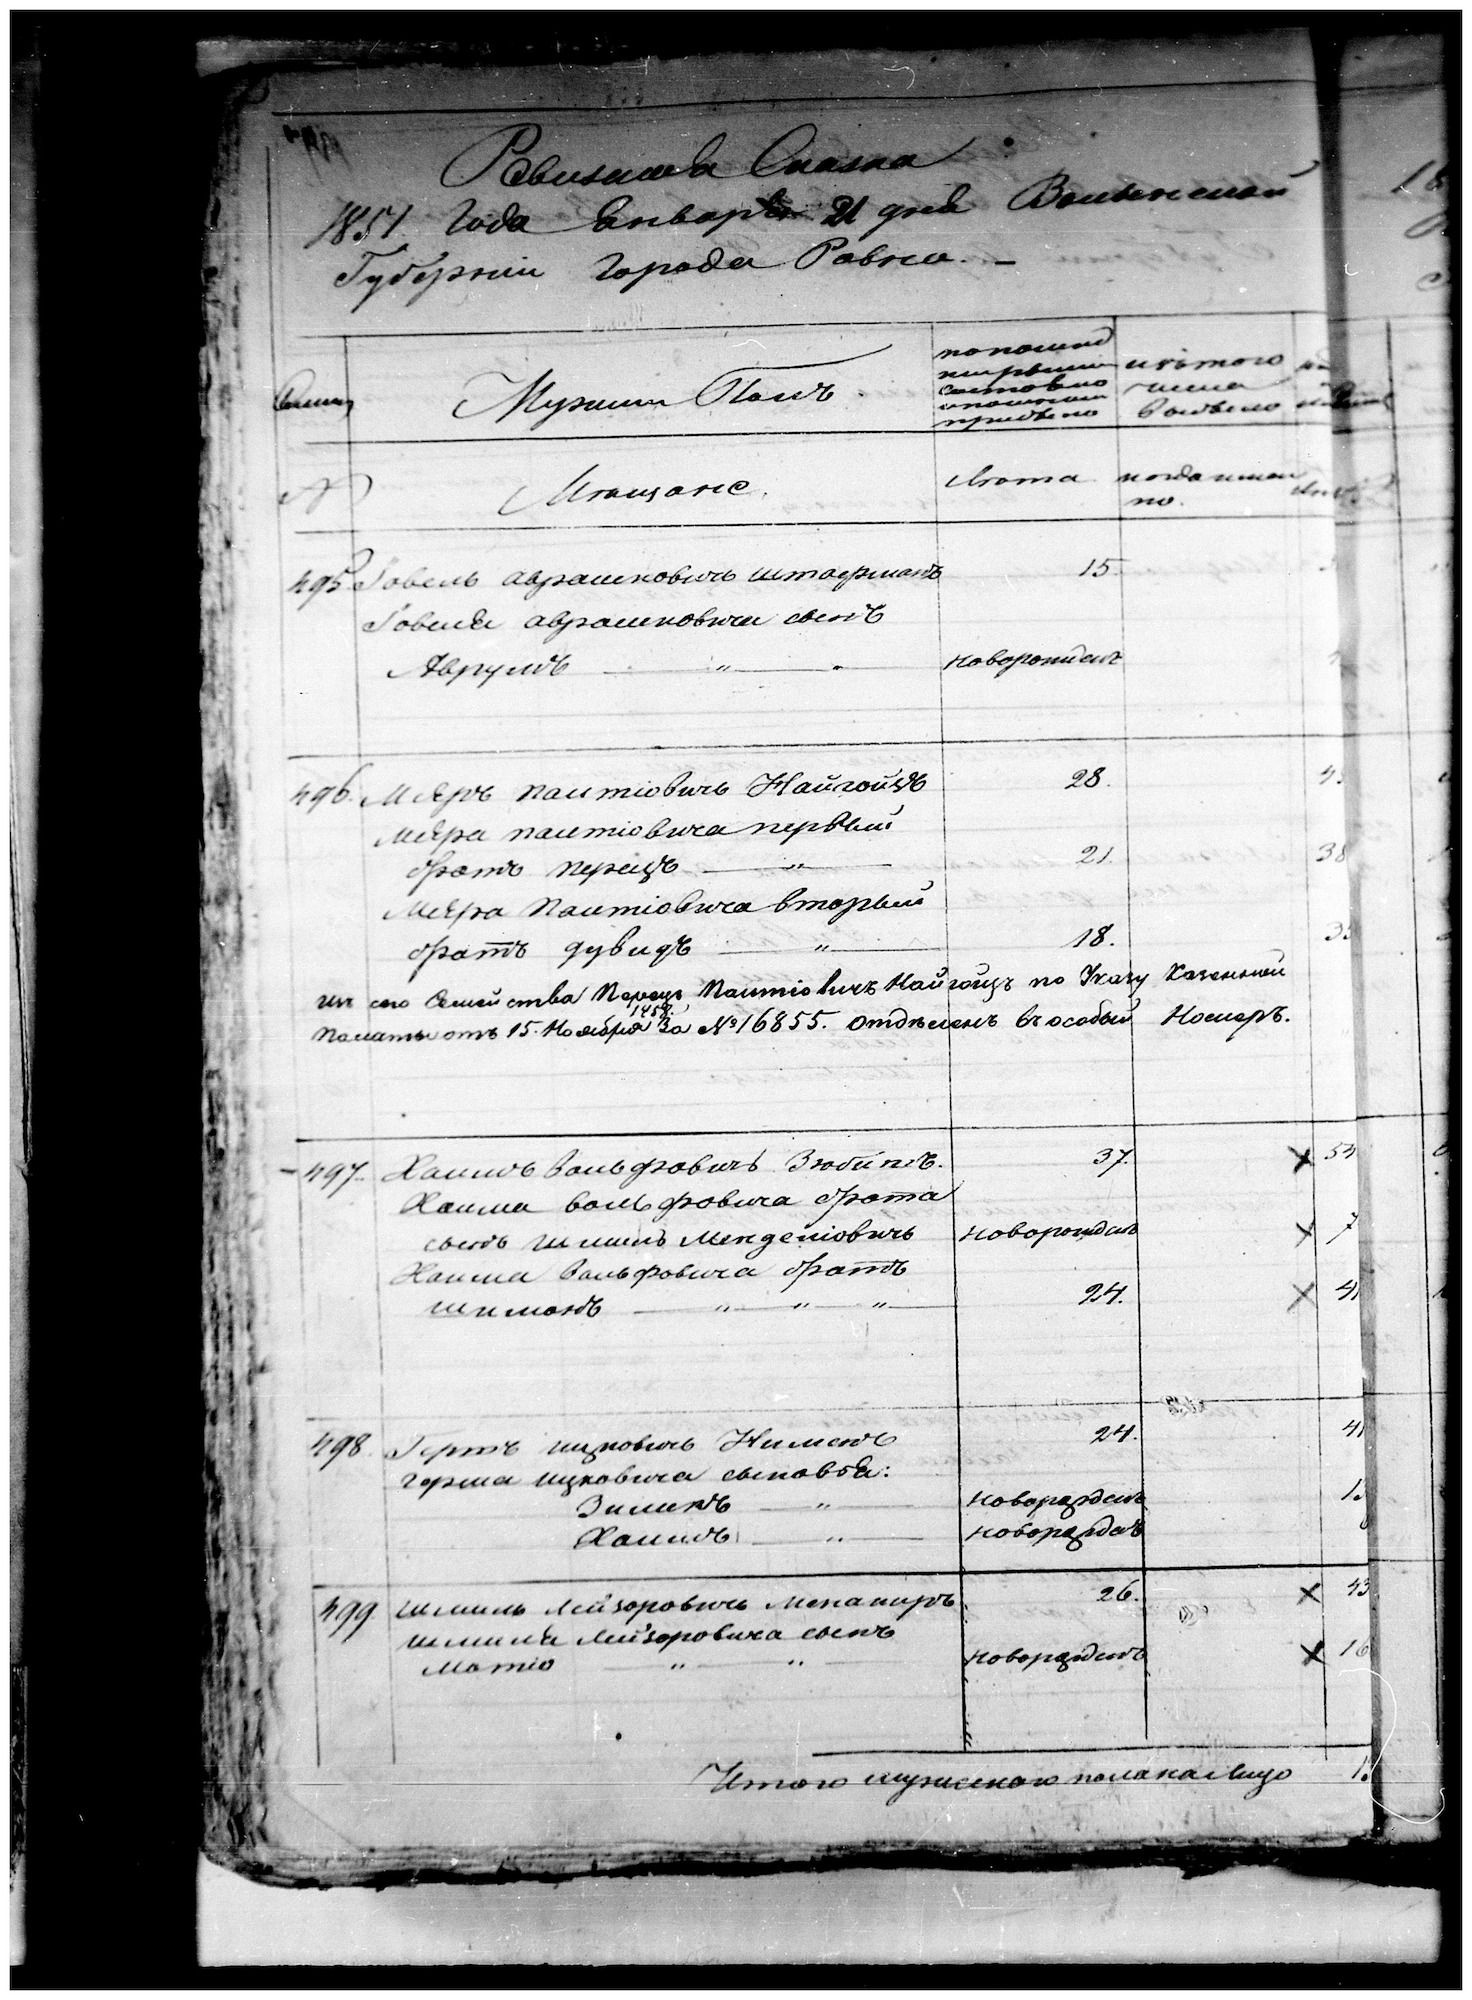 Ревизская Сказка
1851 Года Января 21 дня Волынской
Губернии Города Ровна. —
Семьи
Мужеской Полъ.
по последней
ревизии
состояло
и после
прибыло
изъ того
числа
выбыло
№
Мещане.
Лета
когда имен
но.
495 Говель Аврашковичъ Штаерманъ 15.
Говеля Аврашковича сынъ
Аврумъ — " — " новорожденъ
496. Меяръ Пинтiовичъ Найгойзъ 28.
Меяра Пинтiовича первый
братъ Перецъ — " — 21. 38
Меяра Пинтiовича вторый
братъ Дувидъ — " — 18.
Изъ сего Семейства Перецъ Пинтiовичъ Найгойзъ по Указу Казенной
1858.
Палаты отъ 15. Ноября За № 16855. отделенъ въ особый Номеръ.
497. Хаимъ Вольфовичъ Зюбикъ. 37. × 54
Хаима Вольфовича брата
сынъ Шмиль Менделiовичъ новорожденъ × 7
Хаима Вольфовича братъ
Шимонъ — " — " — " — 24. × 41
498. Гершъ Ицковичъ Нименъ 24. 41
Герша Ицковича сыновья:
Зиликъ — " — новорожденъ
Хаимъ — " — новорожденъ
499 Шмиль Лейзоровичъ Мекамиръ 26. × 43
Шмиля Лейзоровича сынъ
Мотiо — " — " — новорожденъ × 16
Итого мужескаго пола на лицо